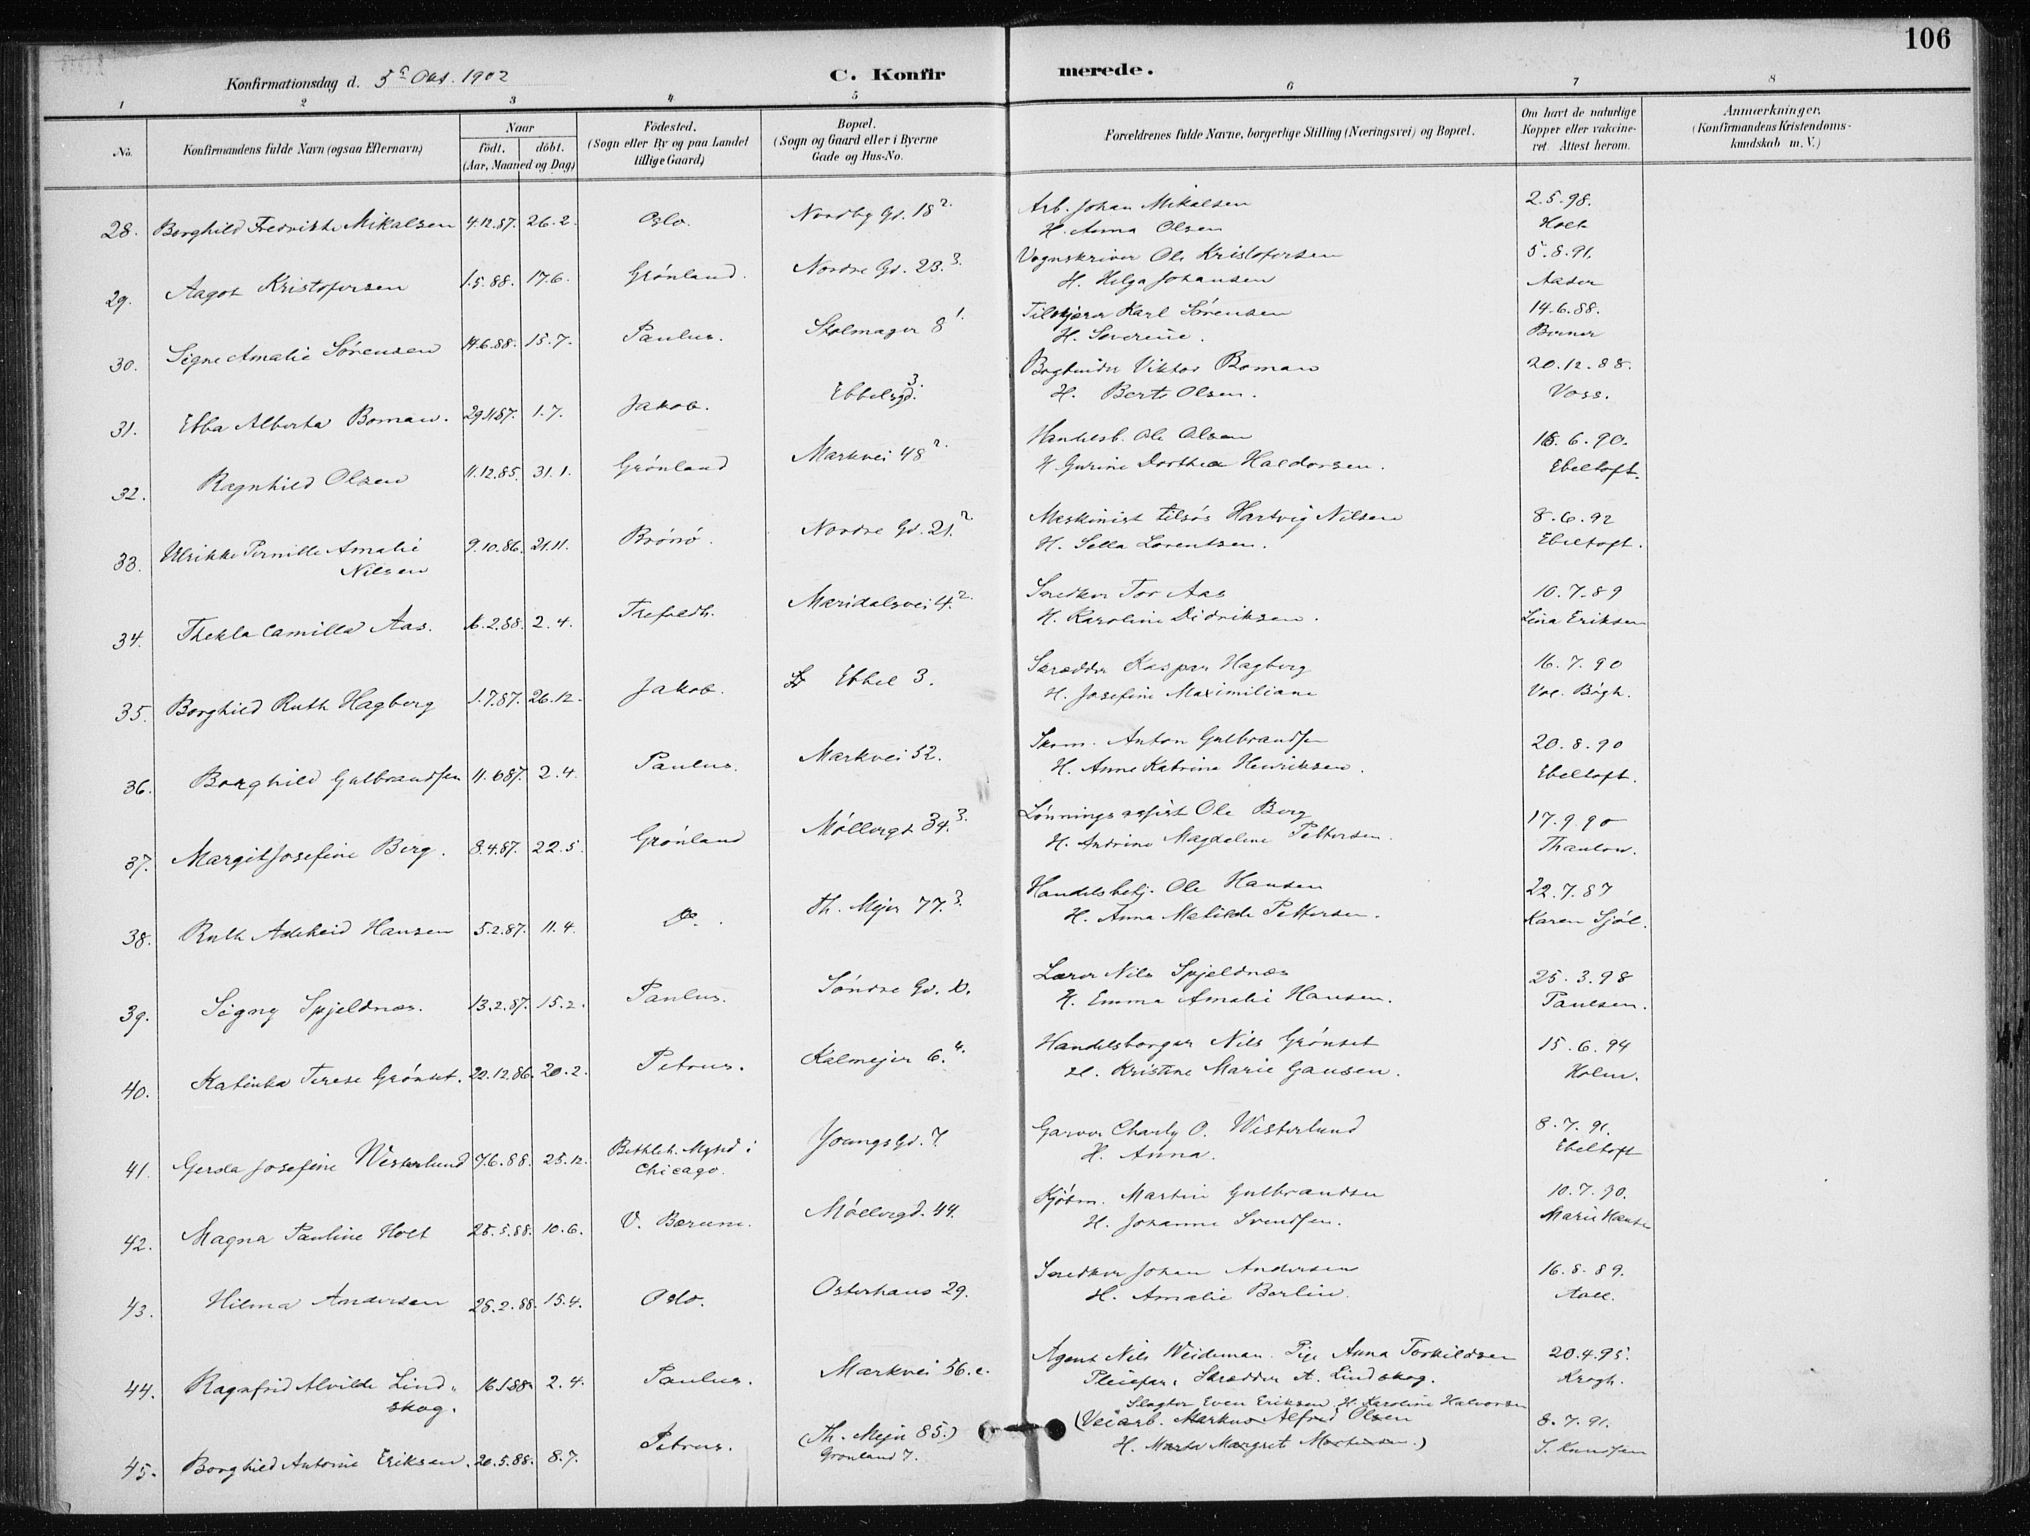 106
Konfirmationsdag d. 5 Okt. 1902
C. Konfirmerede.
1 2 3 4 5 6 7 8
No.
Konfirmandens fulde Navn (ogsaa Efternavn)
Naar
födt. döbt.
(Aar, Maaned og Dag)
Födested.
(Sogn eller By og paa Landet
tillige Gaard)
Bopæl.
(Sogn og Gaard eller i Byerne
Gade og Hus-No.
Forældrenes fulde Navne, borgerlige Stilling (Næringsvei) og Bopæl.
Om havt de naturlige
Kopper eller vakcine-
ret. Attest herom.
Anmærkninger.
(Konfirmandens Kristendoms-
kundskab m. V.)
28. Borghild Fredrikke Mikalsen 4.12.87. 26.2. Oslo. Nordby Gd. 18 2. Arb. Johan Mikalsen 2.5.98.
H. Anna Olsen Holt
29. Aagot Kristofersen 1.5.88. 17.6. Grönland. Nordre Gd. 23. 3. Vognskriver Ole Kristofersen 5.8.91.
H. Helga Johansen Aaser
30. Signe Amalie Sörensen 14.6.88. 15.7. Paulus. Stolmager 8 1. Tilskjærer Karl Sörensen 14.6.88.
H. Severine.
31. Ebba Alberta Boman. 29.11.87. 1.7. Jakob. Ebbelsgd. 3. Bogbinder Viktor Boman 20.12.88.
H. Berte Olsen. Voss.
32. Ragnhild Olsen 11.12.85. 31.1. Grönland Markvei 48 2. Handelsb. Ole Olsen 18.6.90.
H. Gurine Dorthea Haldorsen. Ebeltoft.
33. Ulrikke Pernille Amalie 9.10.86. 21.11. Brönö. Nordre Gd. 21. 2 Maskinist tilsös Hartvig Nilsen 8.6.92
Nilsen H. Sella Lorentsen. Ebeltoft.
34. Thekla Camilla Aas. 16.2.88. 2.4. Trefoldh. Maridalsvei 4. 2. Snedker Tor Aas 10.7.89
H. Karoline Didriksen. Lina Eriksen
35. Borghild Ruth Hagberg 1.7.87. 26.12. Jakob. Ebbel 3. Skrædder Kaspar Hagberg 16.7.90
H. Josefine Maximiliane Val. Bögh.
36. Borghild Gulbrandsen 11.6.87. 2.4. Paulus. Markvei 52. Skom. Anton Gulbrandsen 20.8.90
H. Anne Katrine Henriksen. Ebeltoft.
37. Margit Josefine Berg. 8.4.87. 22.5. Grönland Möllergt 34. 3. Lönningsassist Ole Berg 17.9.90
H. Andrine Magdalene Pettersen. Thaulow.
38. Ruth Adelheid Hansen 5.2.87. 11.4. Do. Th. Mejer 77. 3. Handelsbetj. Ole Hansen 22.7.87
H. Anna Matilde Pettersen. Karen Sjöl.
39. Signy Spjeldnæs. 13.2.87. 15.2. Paulus. Söndre Gd. 10. Lærer Nils Spjeldnæs 25.3.98
H. Emma Amalie Hansen. Paulsen.
40. Katinka Terese Grönset. 22.12.86. 20.2. Petrus. Kalmejer 6. 4. Handelsborger Nils Grönset 15.6.94
H. Kristine Marie Gausen. Holm.
41. Gerda Josefine Westerlund 7.6.88. 25.12. Bethleh. Mgd i Youngsgd. 7. Garver Charly O. Westerlund 8.7.91.
Chicago. H. Anna. Ebeltoft
42. Magna Pauline Holt 25.5.88. 10.6. V. Bærum. Möllergd. 44. Kjöbm. Martin Gulbrandsen 10.7.90.
H. Johanne Svendsen. Marie Hansen
43. Hilma Andersen 25.2.88. 15.4. Oslo. Osterhaus 29. Snedker Johan Andersen 16.8.89.
H. Amalie Berlin. Aall.
44. Ragnfrid Alvilde Lind- 16.1.88. 2.4. Paulus. Markvei 56.c. Agent Nils Weideman. Pige Anna Torkildsen 20.4.95.
skog. Pleiefar. Skrædder A. Lindskog. Krogh.
Slagter Even Eriksen, H. Karoline Halvorsen
(Veiarb. Markus Alfred Olsen 8.7.91.
45. Borghild Antonie Eriksen. 20.5.88. 8.7. Petrus. (Th. Mejer 85.) H. Marte Margret Mortensen.) S. Knudsen
Grönland 7.